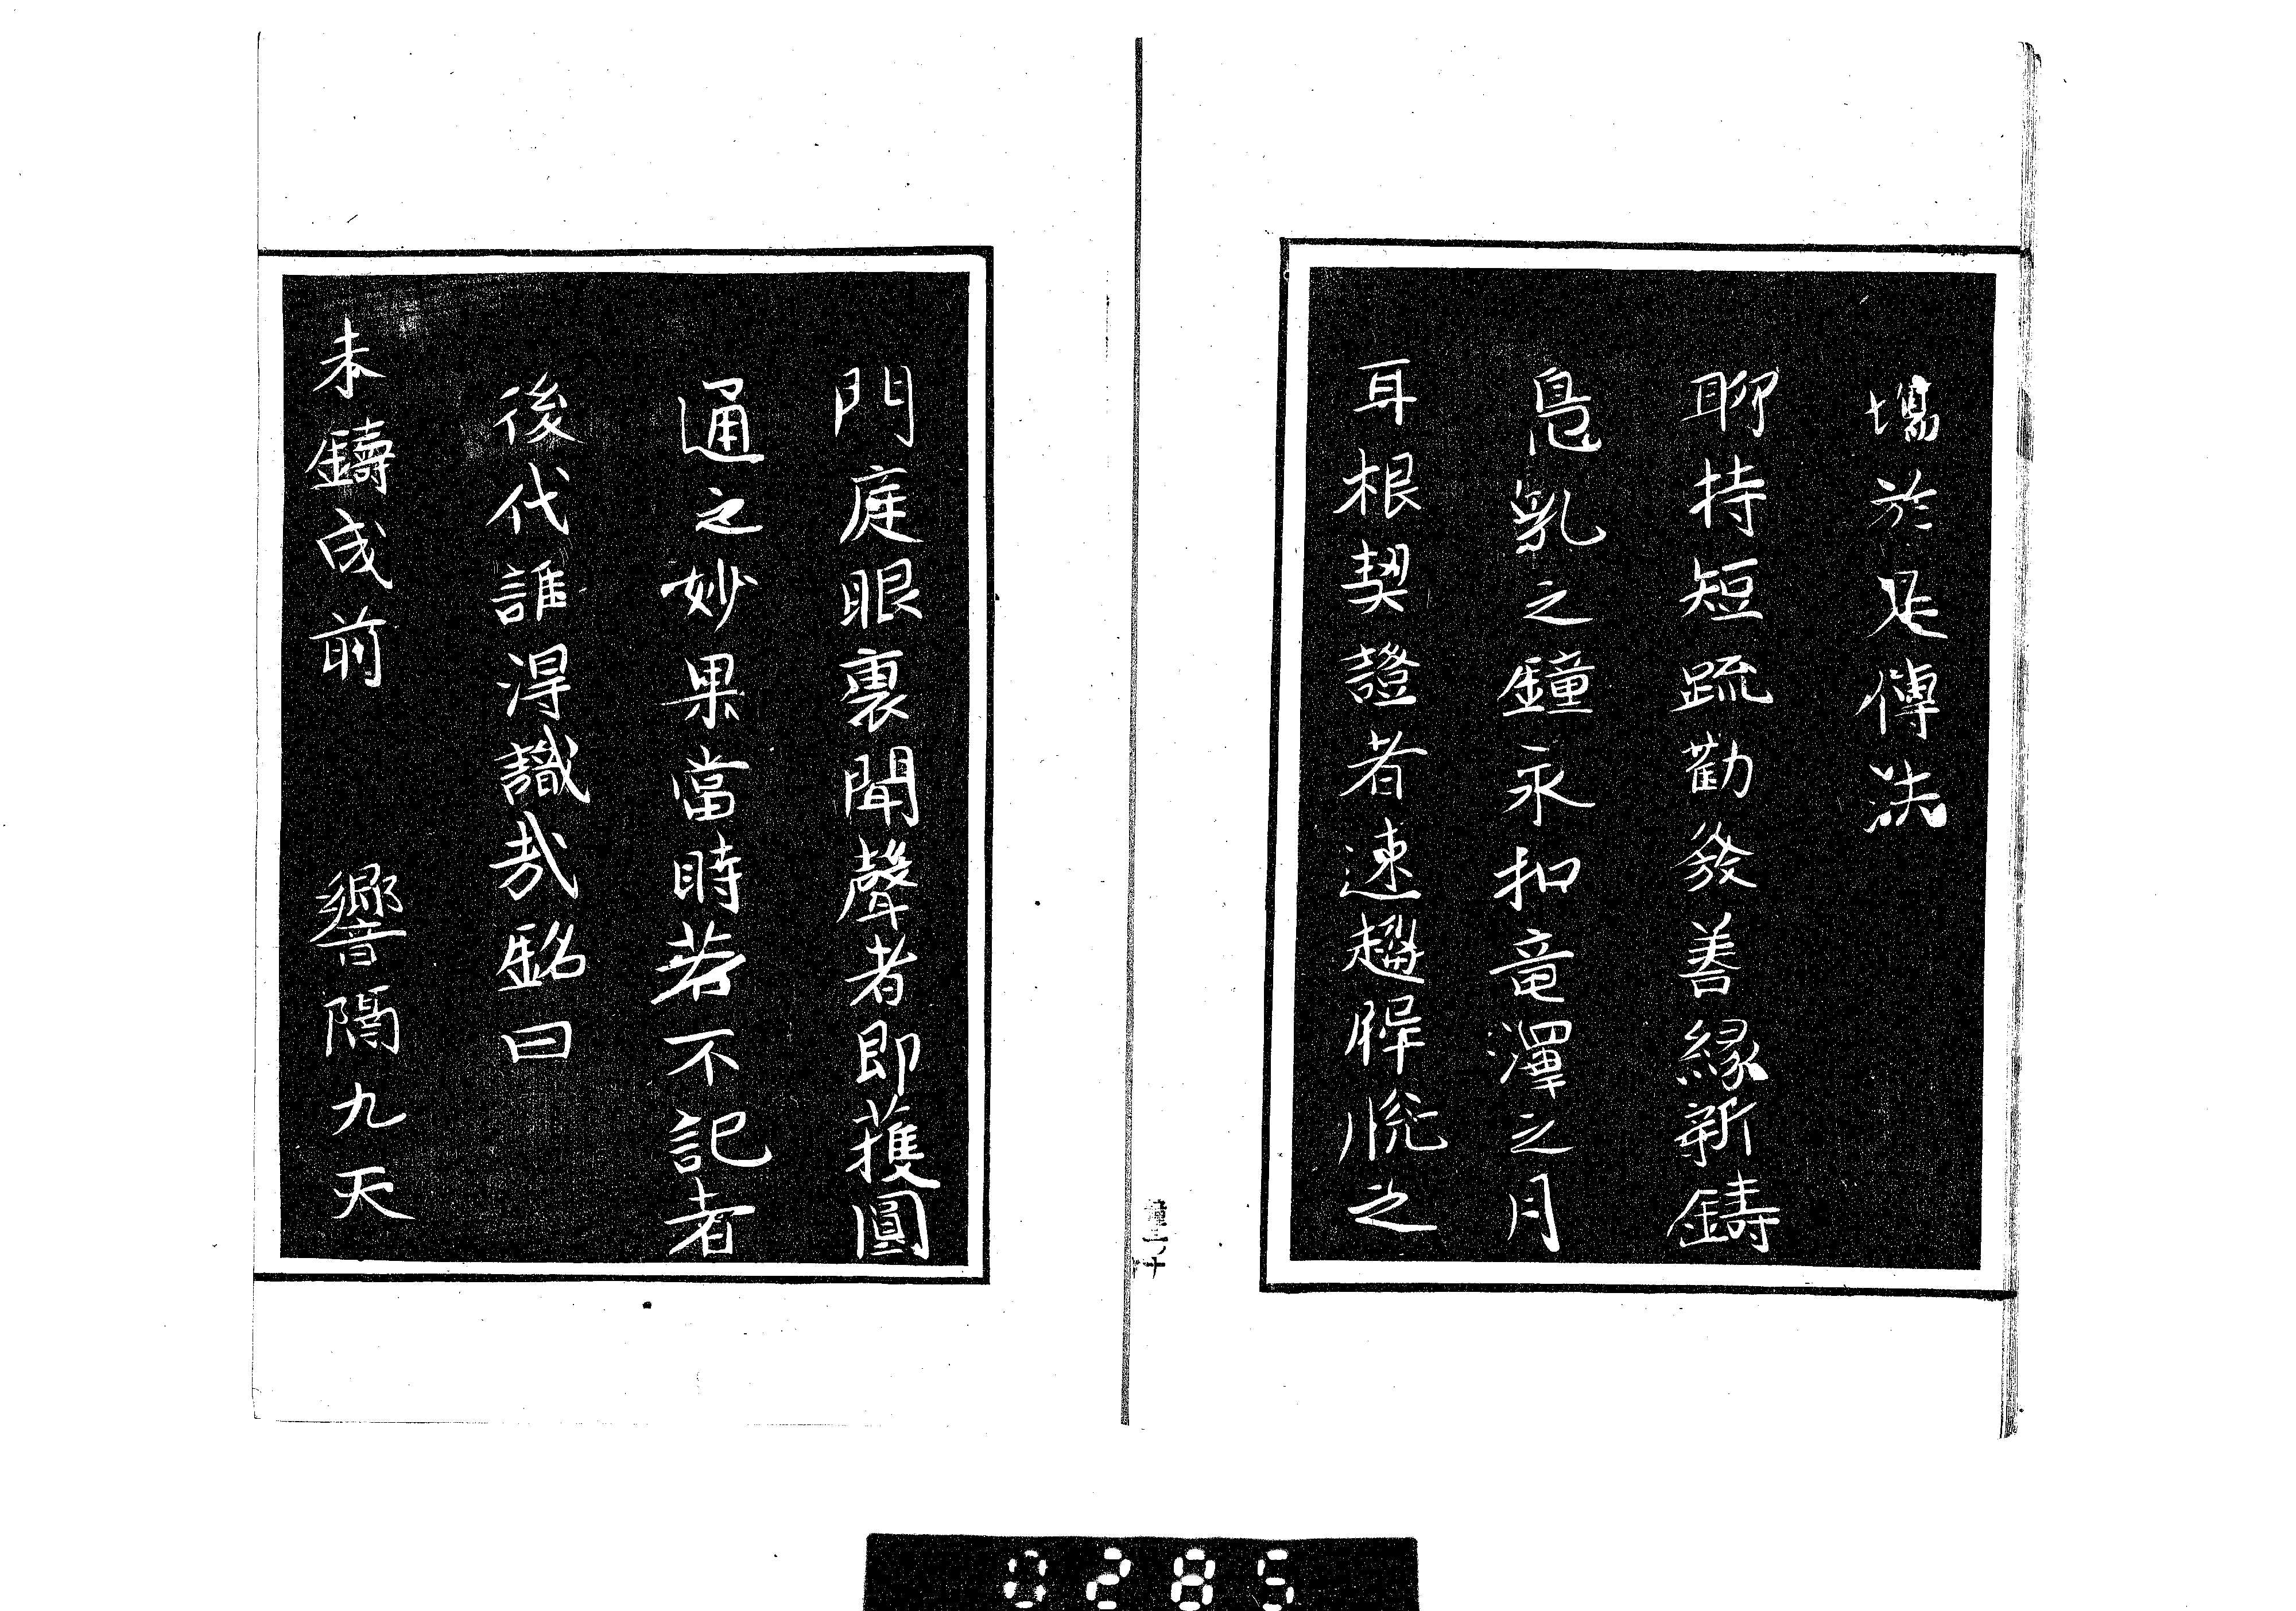 於是傳法
聊持短疏勸發善緣新鑄
鳬乳之鐘永扣竜澤之月
耳根契證者速趨脱之
門庭眼裏聞聲者即獲圓
通之妙果當時若不記者
後代誰得識哉銘曰
未鑄成前 響隔九天
0285